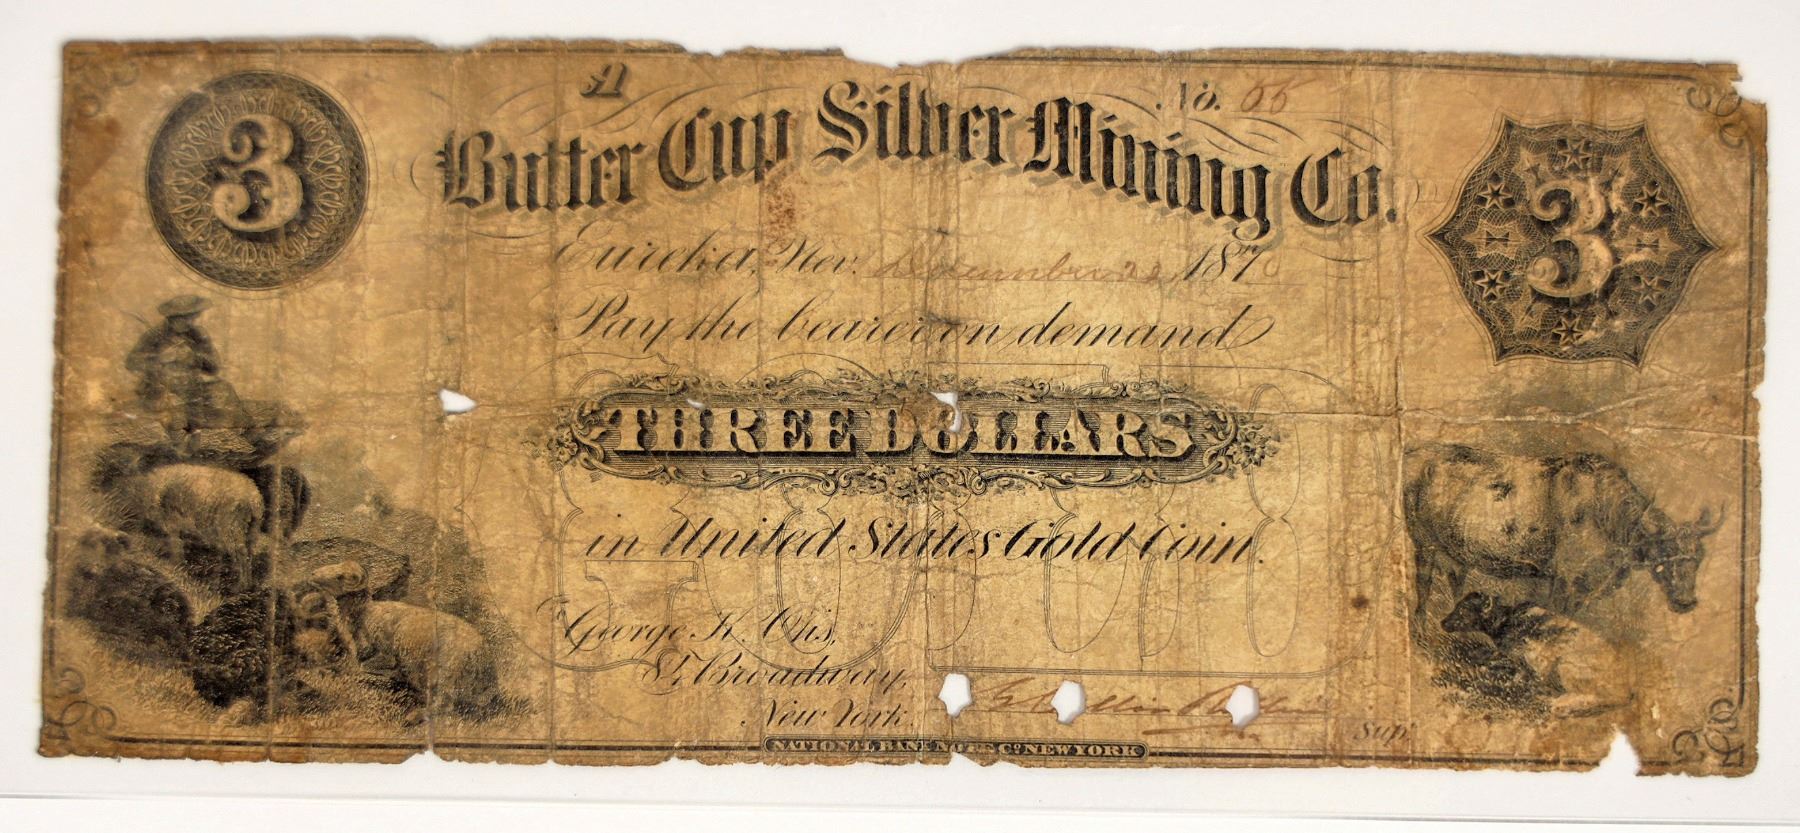 3
A
No. 66
Butter Cup Silver Mining Co.
3
Eureka, Nev. December 22 1870
Pay the bearer on demand
THREE DOLLARS
in United States Gold Coin.
GOLD COIN
To George K. Otis,
87 Broadway,
New York.
Supt
NATIONAL BANK NOTE CO. NEW YORK